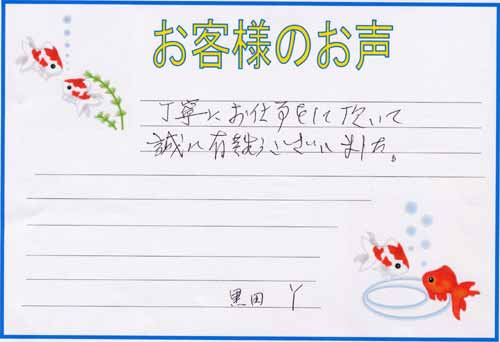 お客様のお声
丁寧にお仕事をして頂いて
誠に有難うございました。
黒田 Y